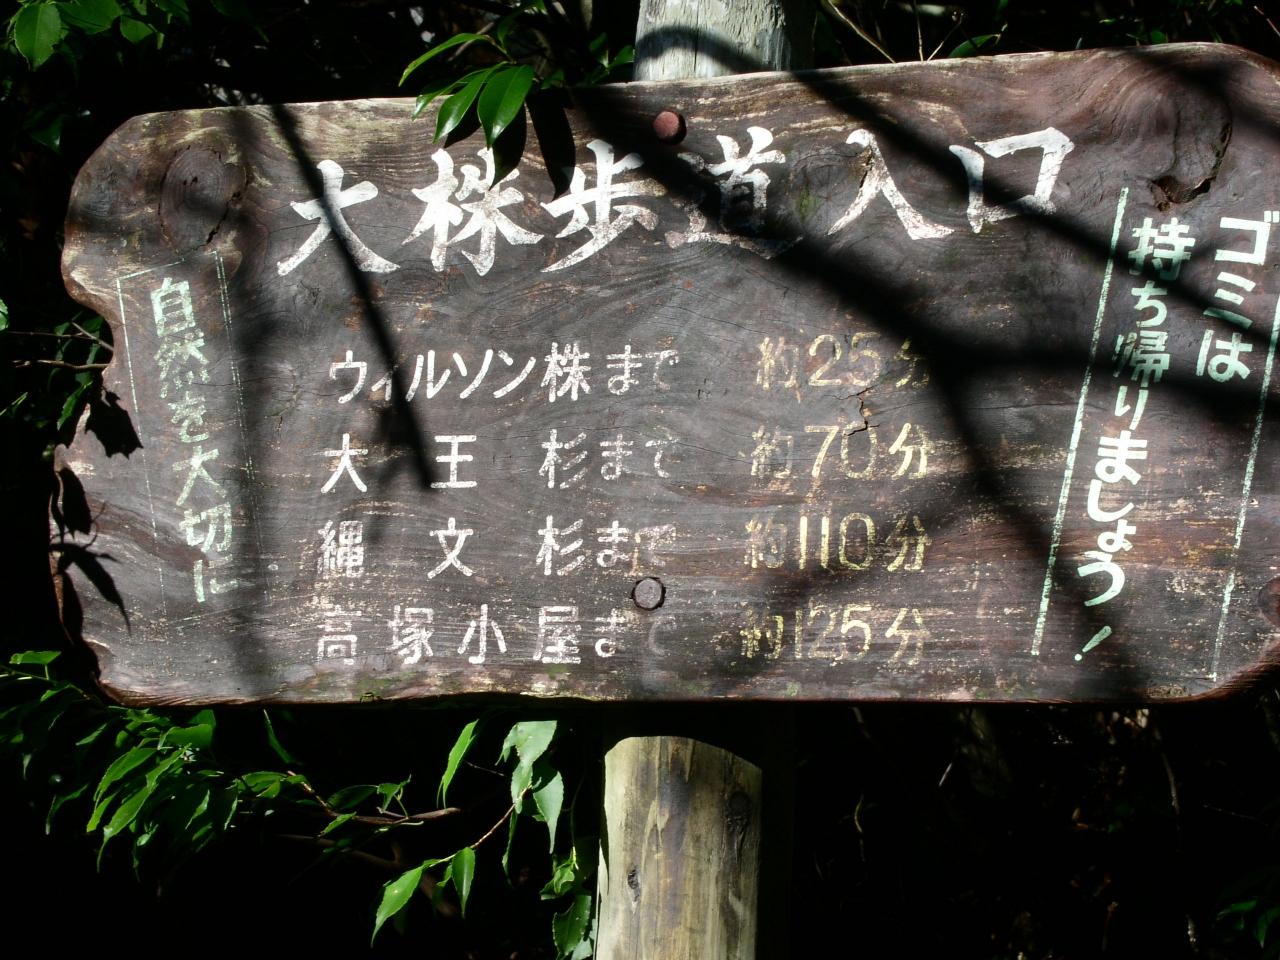 大株歩道入口
ゴミは
持ち帰りましょう!
ウィルソン株まで 約25分
大王杉まで 約70分
縄文杉まで 約110分
高塚小屋まで 約125分
自然を大切に